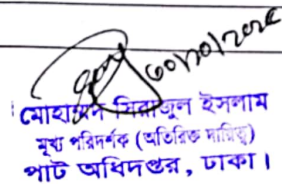 ৩০/১০/২০২৫
মোহাম্মদ সিরাজুল ইসলাম
মুখ্য পরিদর্শক (অতিরিক্ত দায়িত্ব)
পাট অধিদপ্তর, ঢাকা।